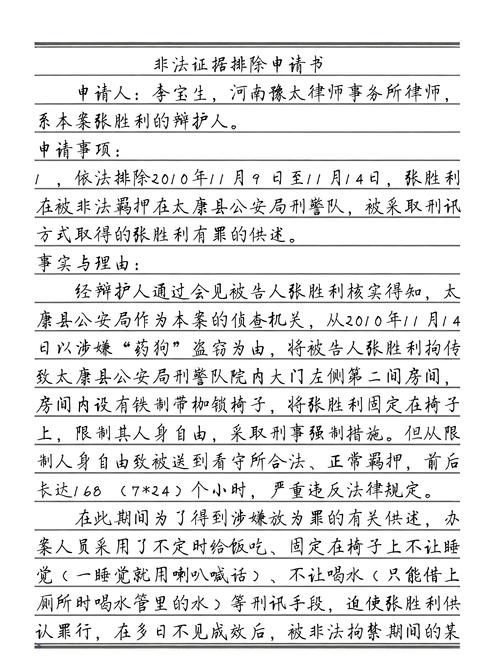 非法证据排除申请书
申请人：李宝生，河南豫太律师事务所律师，
系本案张胜利的辩护人。
申请事项：
1 ，依法排除2010年11月9日至11月14日，张胜利
在被非法羁押在太康县公安局刑警队，被采取刑讯
方式取得的张胜利有罪的供述。
事实与理由：
经辩护人通过会见被告人张胜利核实得知，太
康县公安局作为本案的侦查机关，从2010年11月14
日以涉嫌“药狗”盗窃为由，将被告人张胜利拘传
致太康县公安局刑警队院内大门左侧第二间房间，
房间内设有铁制带枷锁椅子，将张胜利固定在椅子
上，限制其人身自由，采取刑事强制措施。但从限
制人身自由致被送到看守所合法、正常羁押，前后
长达168 （7*24）个小时，严重违反法律规定。
在此期间为了得到涉嫌放为罪的有关供述，办
案人员采用了不定时给饭吃、固定在椅子上不让睡
觉（一睡觉就用喇叭喊话）、不让喝水（只能借上
厕所时喝水管里的水）等刑讯手段，迫使张胜利供
认罪行，在多日不见成效后，被非法拘禁期间的某